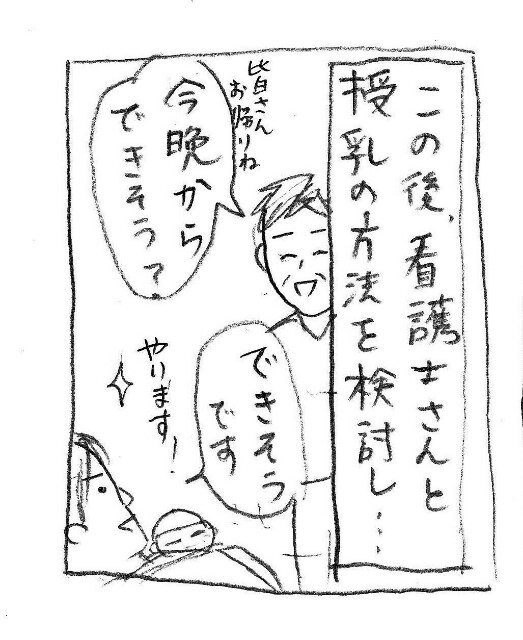 この後、看護士さんと
授乳の方法を検討し…
皆さん
お帰りね
今晩から
できそう？
できそう
です
やります！